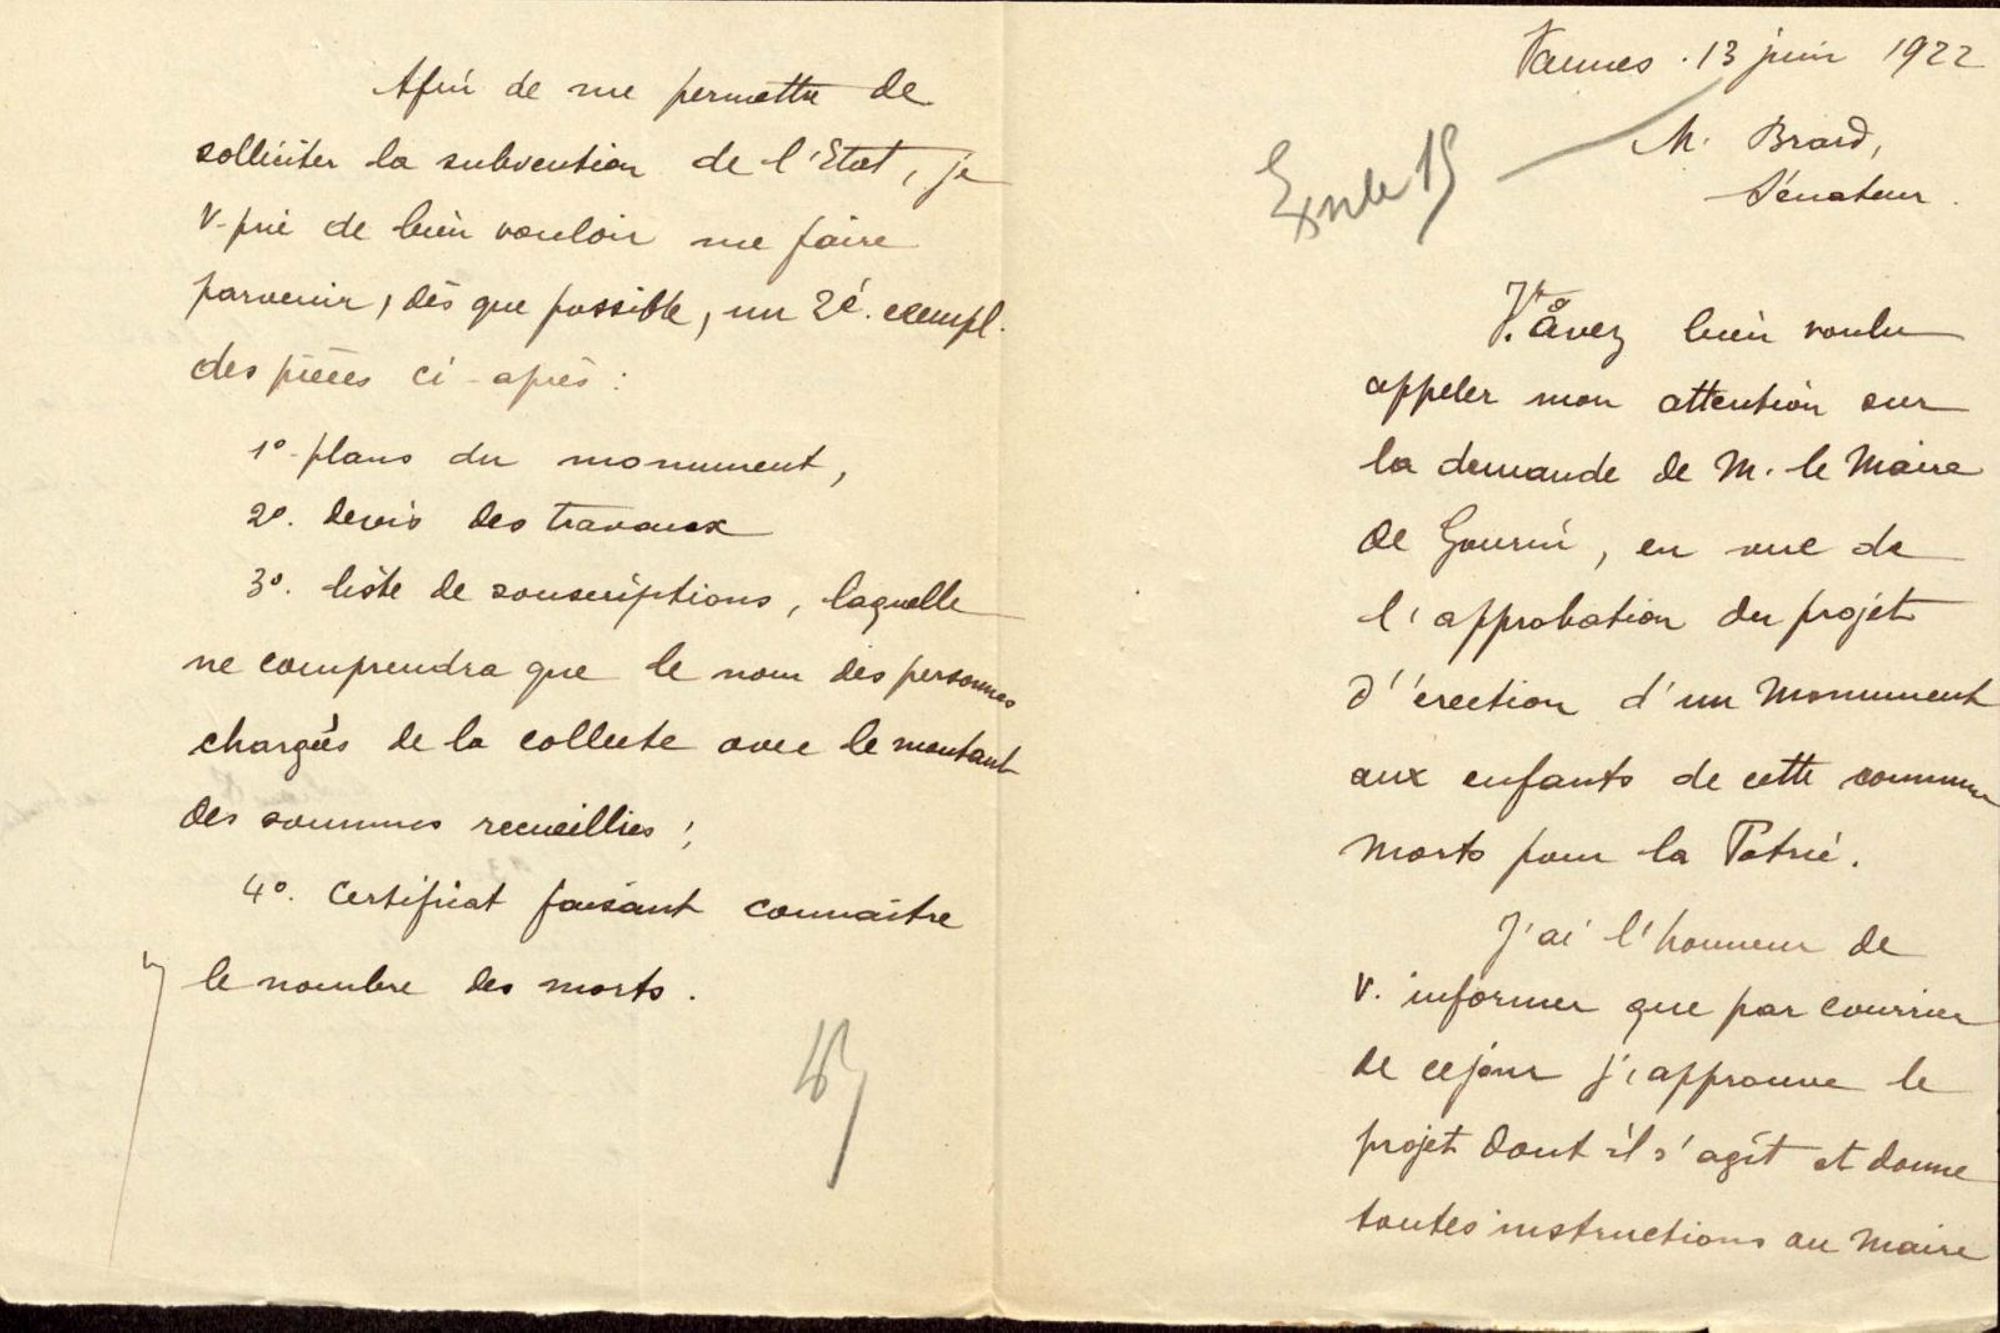 Afin de me permettre de
solliciter la subvention de l'Etat, je
V. prie de bien vouloir me faire
parvenir, dès que possible, un 2é. exempl.
des pièces ci-après :
1º- plans du monument,
2º. devis des travaux
3º. liste de souscriptions, laquelle
ne comprendra que le nom des personnes
chargées de la collecte avec le montant
des sommes recueillies ;
4º. Certificat faisant connaître
le nombre des morts.
Vannes. 13 juin 1922
M. Brard,
Sénateur.
15
V. avez bien voulu
appeler mon attention sur
la demande de M. le Maire
de Gourin, en vue de
l'approbation du projet
d'érection d'un Monument
aux enfants de cette commune
morts pour la Patrie.
J'ai l'honneur de
V. informer que par courrier
de ce jour j'approuve le
projet dont il s'agit et donne
toutes instructions au Maire